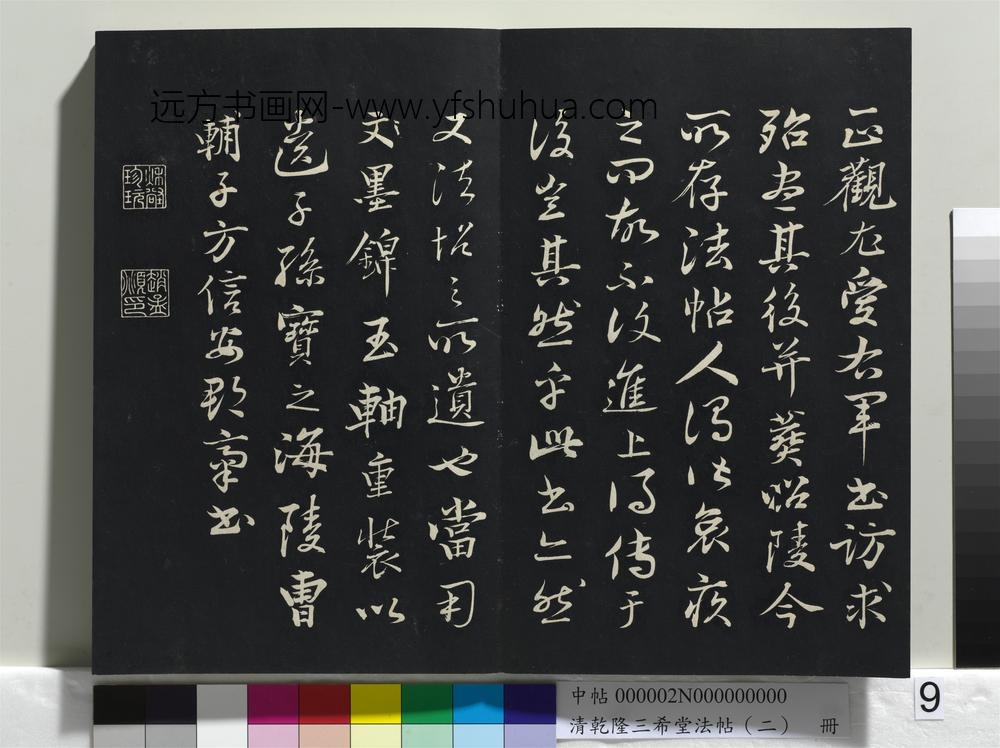 正觀尤愛右軍書訪求
殆盡其後并葬昭陵今
所存法帖人得皆哀疾
之問故不進上得傳于
後豈其然乎此書亦然
又法帖之所遺也當用
墨錦玉軸重裝以
遺子孫寶之海陵曹
輔子方信安郡齋書
远方书画网-www.yfshuhua.com
中帖 000002N000000000
清乾隆三希堂法帖（二） 册
9